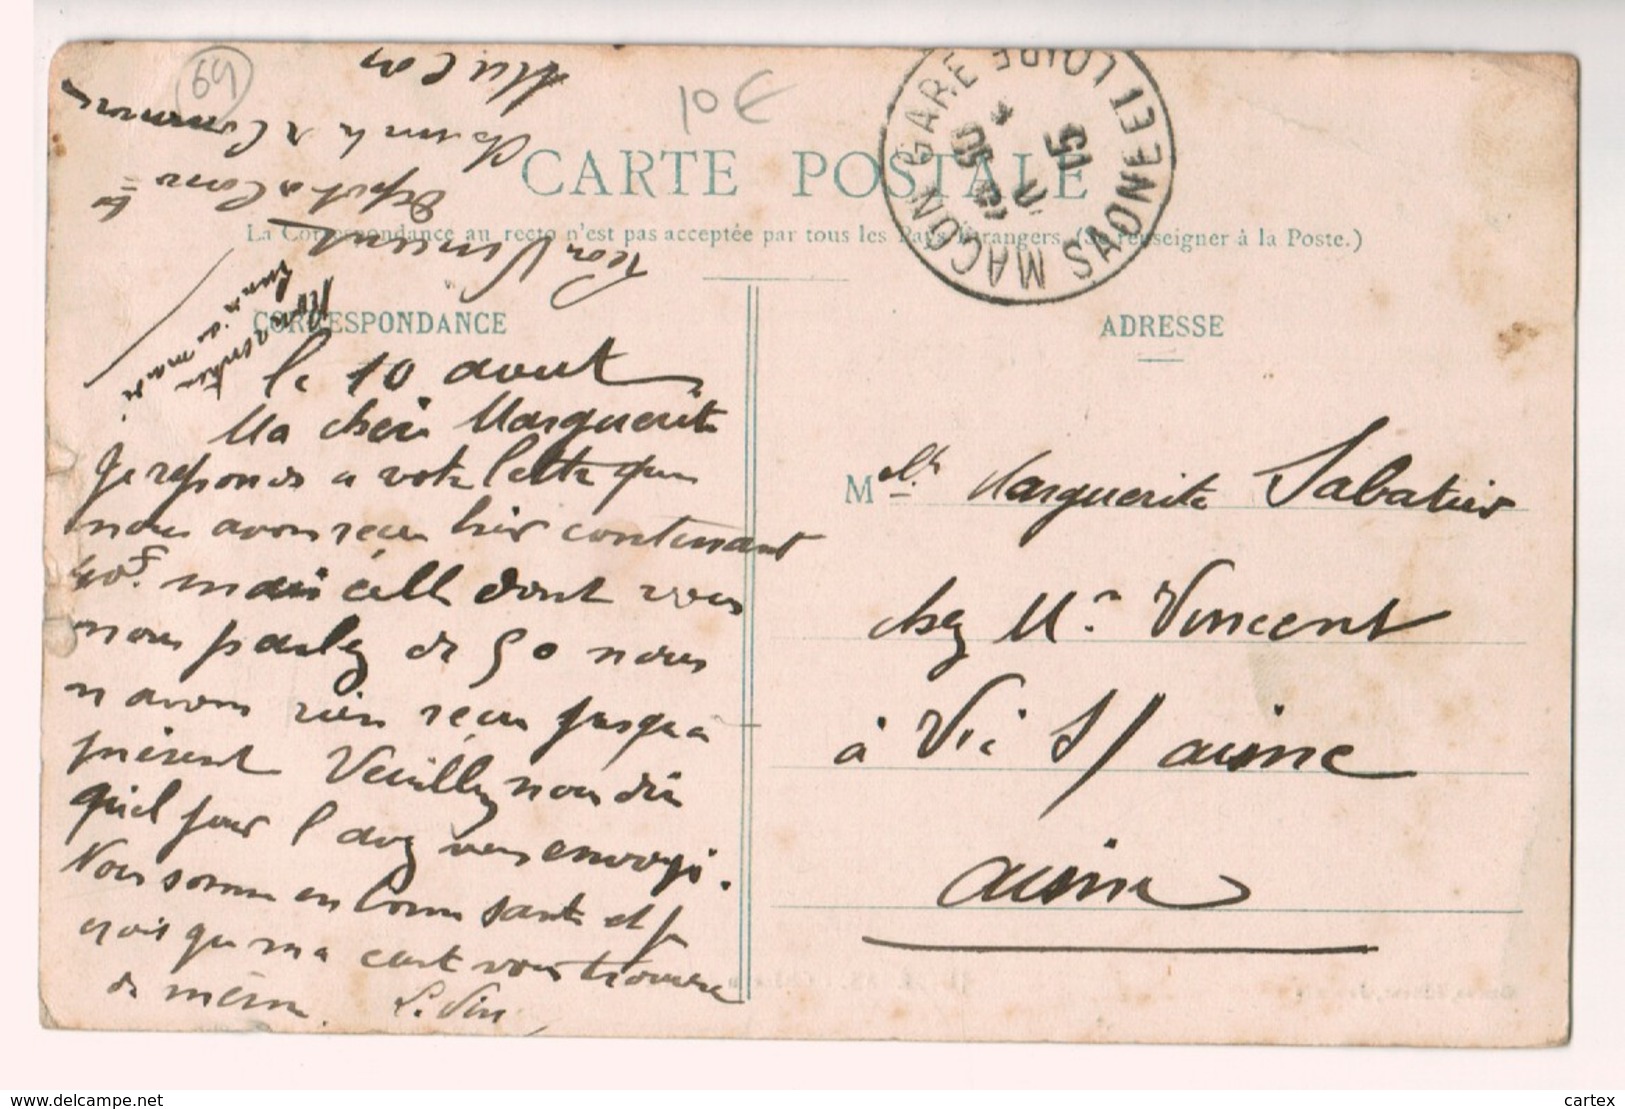 69
10 €
CARTE POSTALE
La Correspondance au recto n'est pas acceptée par tous les Pays Etrangers (Se renseigner à la Poste.)
MACON GARE
SAONE ET LOIRE
CORRESPONDANCE
ADRESSE
Léon Vincent
Dépôt de
Macon
le 10 aout
Ma chère Marguerite
Je reponds a votre lettre que
nous avons reçu hier contenant
40f. mais celle dont vous
nous parlez de 50 nous
n avons rien reçu jusqu à
présent Veuillez nous dire
quel jour l avez vous envoyé.
Nous somme en bonne santé et je
crois que ma carte vous trouvera
de même. L. Vin
Melle Marguerite Sabatier
chez Mr. Vincent
à Vic s/ aisne
aisne
delcampe.net
cartex